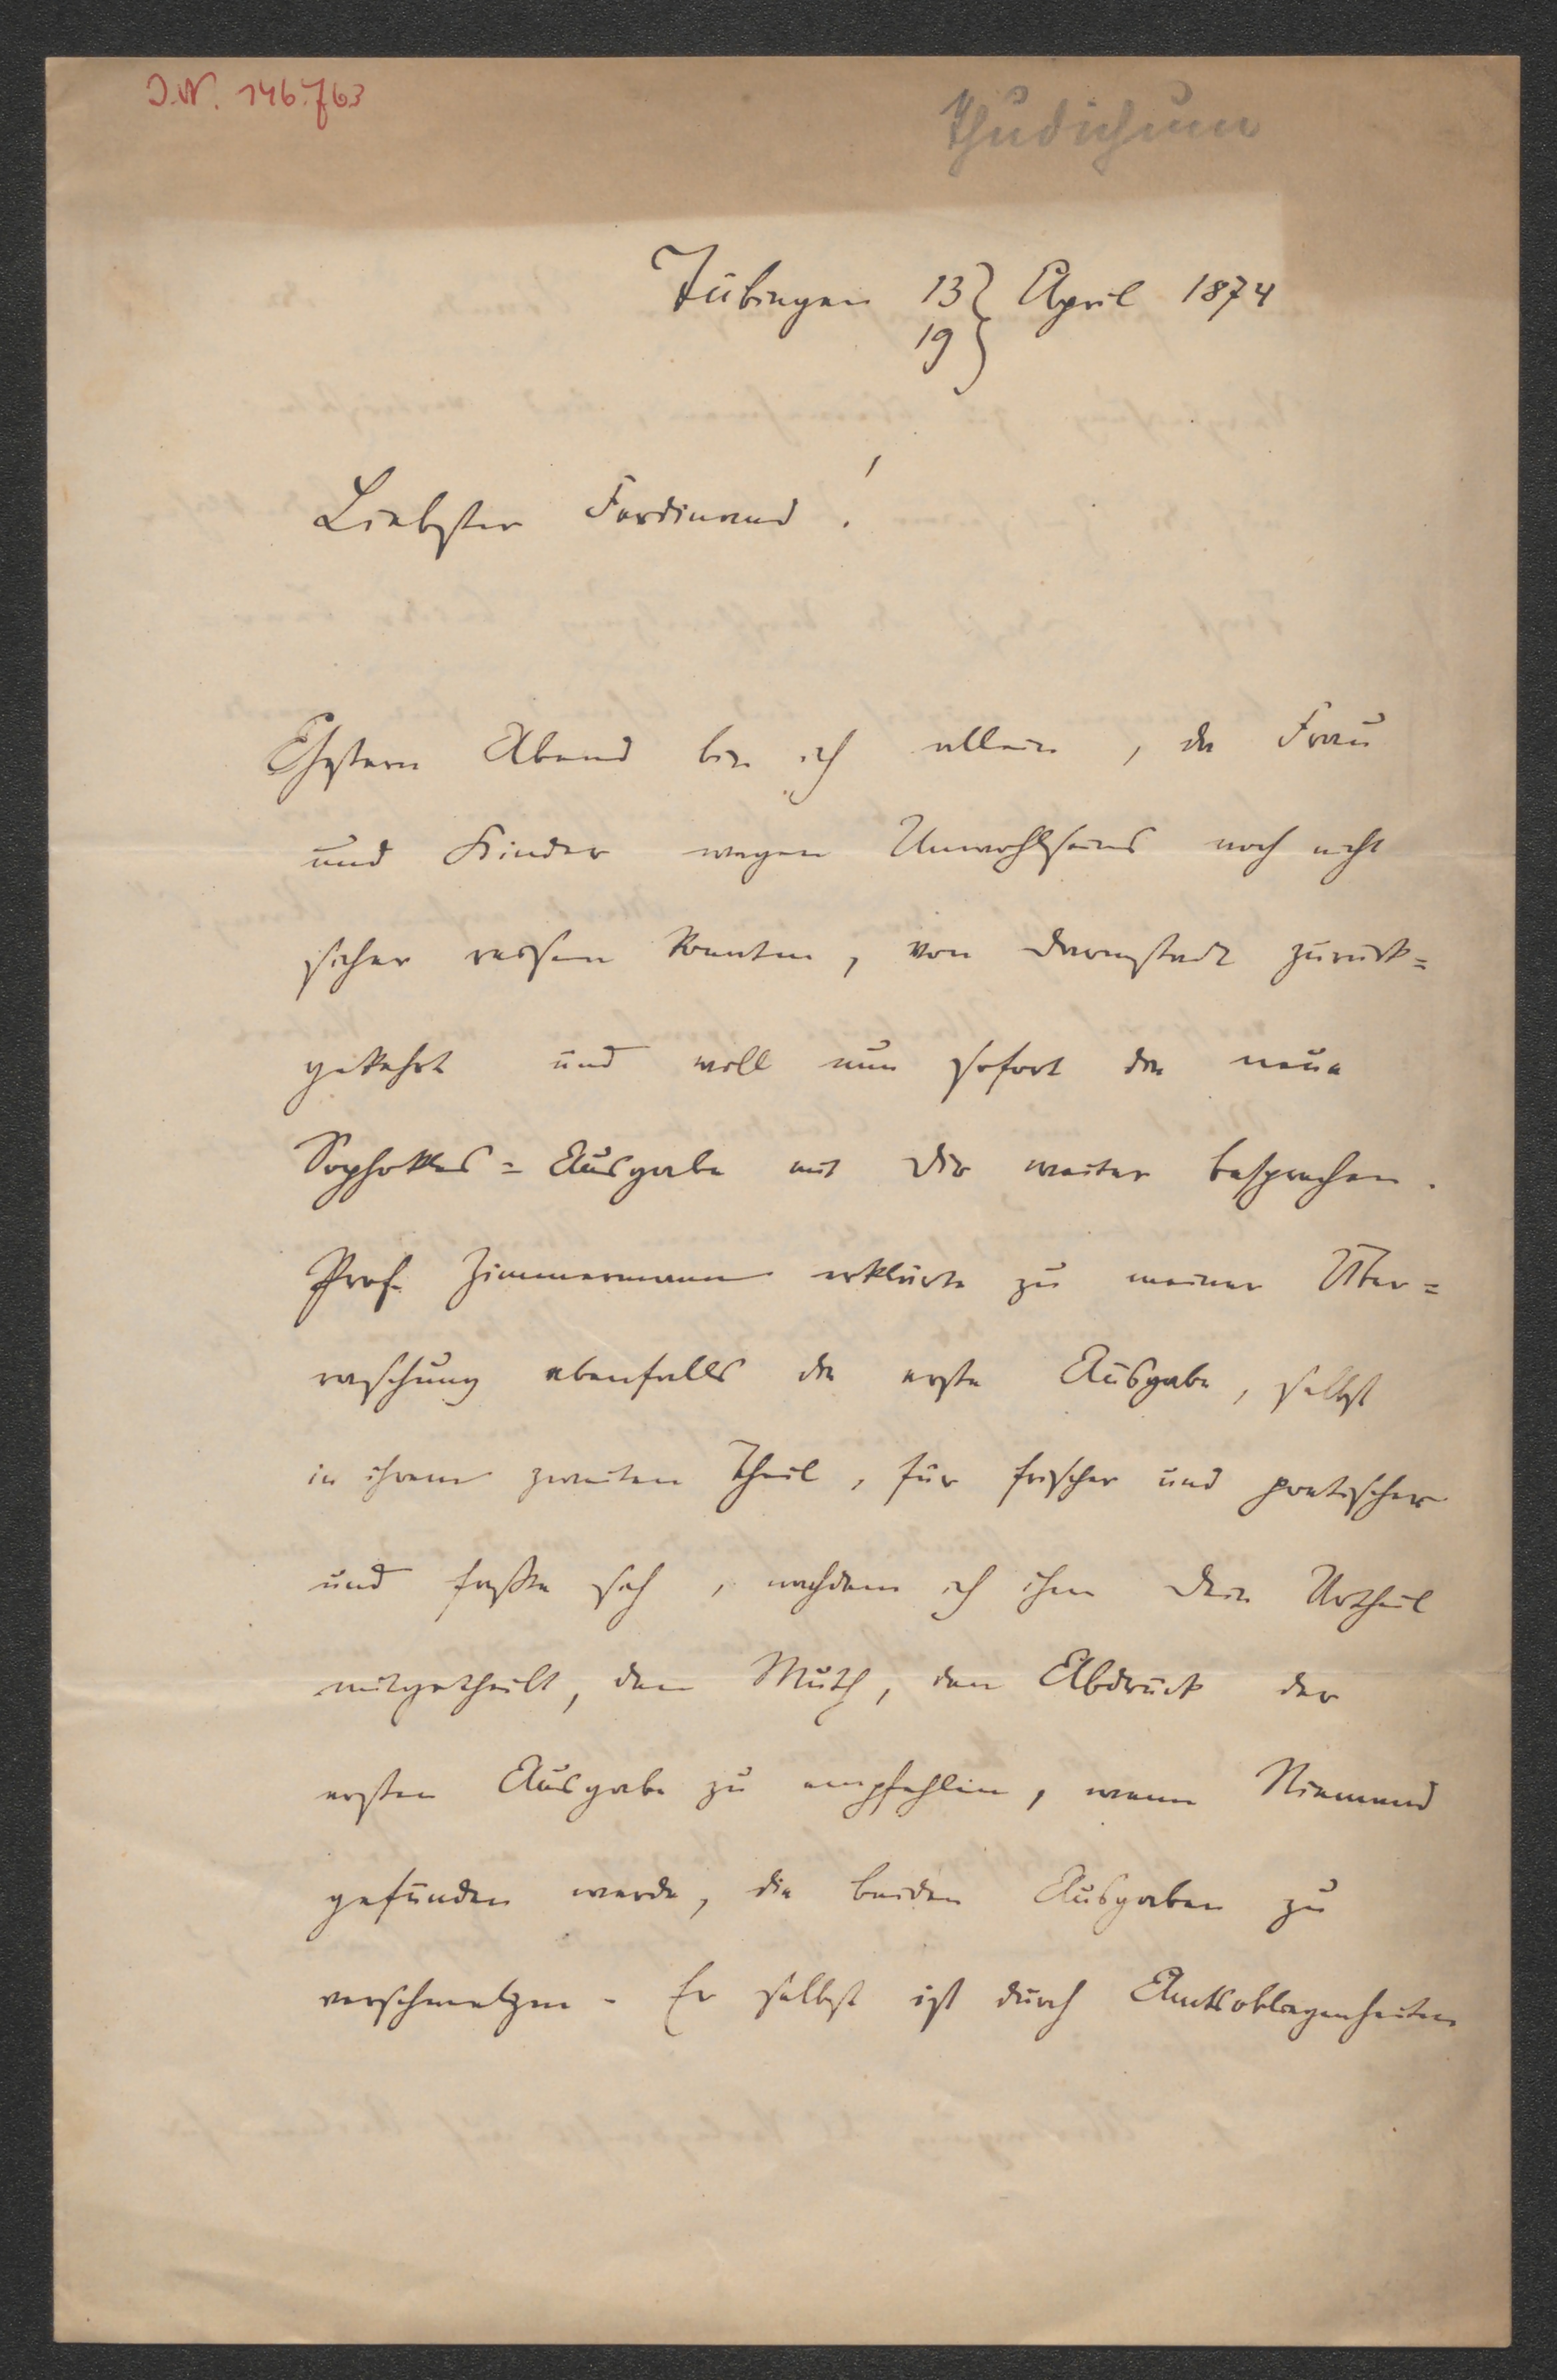 J.N. 146.763
Thudichum
Tübingen 13 } April 1874
19 }
Liebster Ferdinand!
Gestern Abend bin ich allein, da Frau
und Kinder wegen Unwohlseins noch nicht
sicher reisen konnten, von Darmstadt zurück=
gekehrt und will nun sofort die neue
Sophokles=Ausgabe mit Dir weiter besprechen.
Prof. Zimmermann erklärte zu meiner Über=
raschung ebenfalls die erste Ausgabe, selbst
in ihrem zweiten Theil, für frischer und poetischer
und faßte sich, nachdem ich ihm Dein Urtheil
mitgetheilt, den Muth, den Abdruck der
ersten Ausgabe zu empfehlen, wenn Niemand
gefunden werde, die beiden Ausgaben zu
verschmelzen. Er selbst ist durch Amtsobliegenheiten